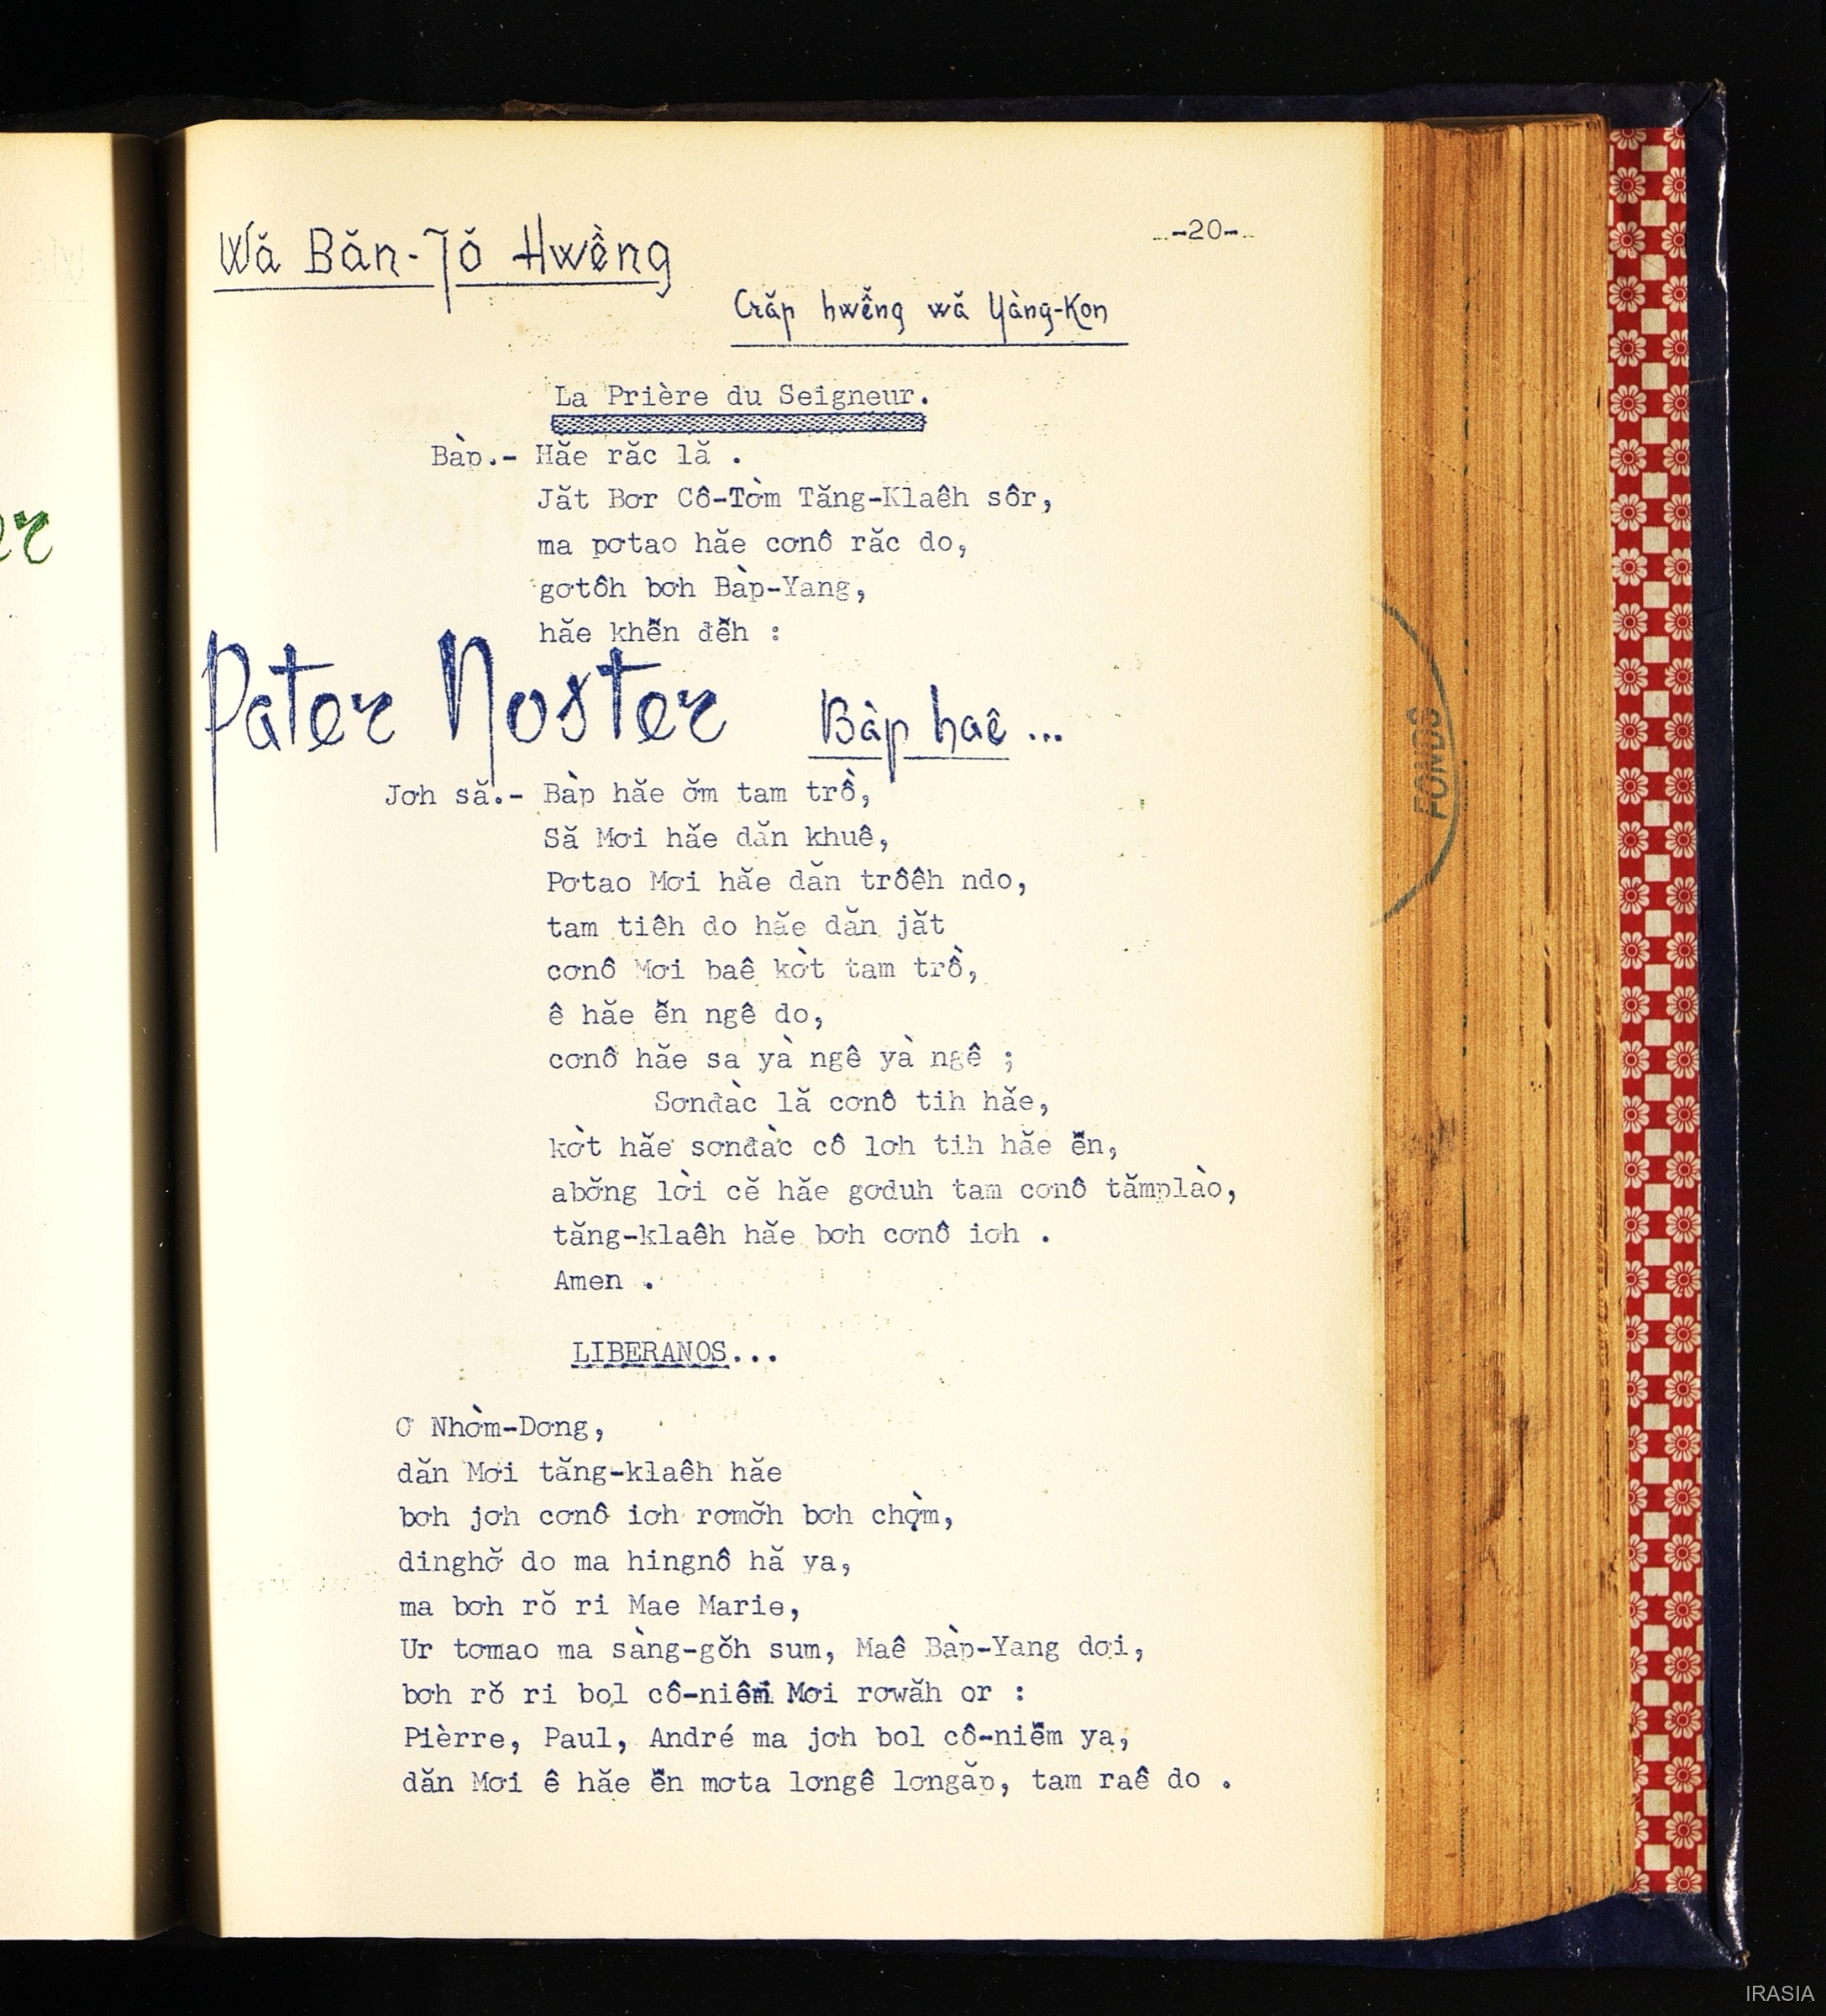 Wă Băn-Jŏ Hwềng
-20-
Crăp hwễng wă Yàng-Kon
La Prière du Seigneur.
Bàp.- Hăe răc lă .
Jăt Bơr Cô-Tờm Tăng-Klaêh sôr,
ma pơtao hăe cơnô răc do,
gơtôh bơh Bàp-Yang,
hăe khễn đễh :
Pater Noster Bàp haê ...
Jơh să.- Bàp hăe ơ̆m tam trồ,
Să Mơi hăe dăn khuê,
Pơtao Mơi hăe dăn trôêh ndo,
tam tiêh do hăe dăn jăt
cơnô Mơi baê kờt tam trồ,
ê hăe ễn ngê do,
cơnô hăe sa yà ngê yà ngê ;
Sơnđàc lă cơnô tih hăe,
kờt hăe sơnđàc cô lơh tih hăe ễn,
abơ̆ng lời cĕ hăe gơduh tam cơnô tămplào,
tăng-klaêh hăe bơh cơnô iơh .
Amen .
LIBERANOS...
Ơ Nhờm-Dơng,
dăn Mơi tăng-klaêh hăe
bơh jơh cơnô iơh rơmơ̆h bơh chọ̀m,
dinghơ̆ do ma hingnô hă ya,
ma bơh rŏ ri Mae Marie,
Ur tơmao ma sàng-gŏh sum, Maê Bàp-Yang dơi,
bơh rŏ ri bol cô-niêm Mơi rơwăh or :
Pièrre, Paul, André ma jơh bol cô-niễm ya,
dăn Mơi ê hăe ễn mơta lơngê lơngăp, tam raê do .
FONDS
IRASIA